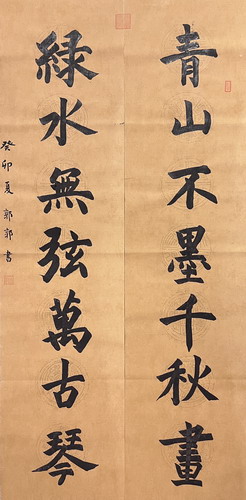 青山不墨千秋畫
綠水無弦萬古琴
癸卯夏郭郭書